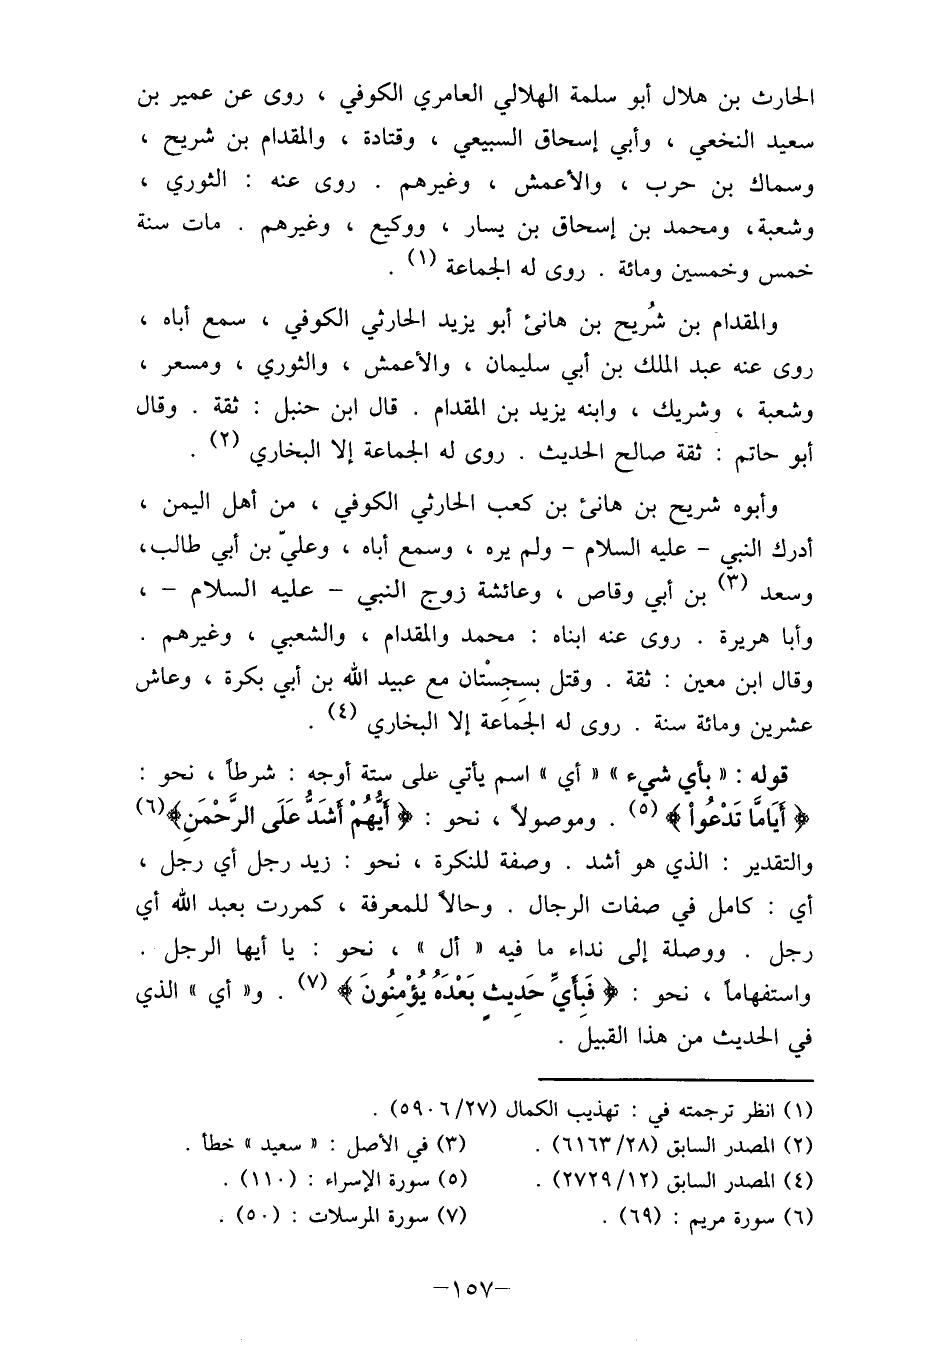 الحارث بن هلال أبو سلمة الهلالي العامري الكوفي ، روى عن عمير بن
سعيد النخعي ، وأبي إسحاق السبيعي ، وقتادة ، والمقدام بن شريح ،
وسماك بن حرب ، والأعمش ، وغيرهم . روى عنه : الثوري ،
وشعبة، ومحمد بن إسحاق بن يسار ، ووكيع ، وغيرهم . مات سنة
خمس وخمسين ومائة . روى له الجماعة (١) .
والمقدام بن شُريح بن هانئ أبو يزيد الحارثي الكوفي ، سمع أباه ،
روى عنه عبد الملك بن أبي سليمان ، والأعمش ، والثوري ، ومسعر ،
وشعبة ، وشريك ، وابنه يزيد بن المقدام . قال ابن حنبل : ثقة . وقال
أبو حاتم : ثقة صالح الحديث . روى له الجماعة إلا البخاري (٢) .
وأبوه شريح بن هانئ بن كعب الحارثي الكوفي ، من أهل اليمن ،
أدرك النبي - عليه السلام - ولم يره ، وسمع أباه ، وعليّ بن أبي طالب،
وسعد (٣) بن أبي وقاص ، وعائشة زوج النبي - عليه السلام - ،
وأبا هريرة . روى عنه ابناه : محمد والمقدام ، والشعبي ، وغيرهم .
وقال ابن معين : ثقة . وقتل بسِجِسْتان مع عبيد الله بن أبي بكرة ، وعاش
عشرين ومائة سنة . روى له الجماعة إلا البخاري (٤) .
قوله : « بأي شيء » « أي » اسم يأتي على ستة أوجه : شرطاً ، نحو :
﴿ أَيَاماَّ تَدْعُواْ ﴾ (٥) . وموصولاً ، نحو : ﴿ أَيُّهُمْ أَشَدُّ عَلَى الرَّحْمَنِ﴾(٦)
والتقدير : الذي هو أشد . وصفة للنكرة ، نحو : زيد رجل أي رجل ،
أي : كامل في صفات الرجال . وحالاً للمعرفة ، كمررت بعبد الله أي
رجل . ووصلة إلى نداء ما فيه « أل » ، نحو : يا أيها الرجل .
واستفهاماً ، نحو : ﴿ فَبِأَيِّ حَدِيثٍ بَعْدَهُ يُؤْمِنُونَ ﴾ (٧) . و« أي » الذي
في الحديث من هذا القبيل .
(١) انظر ترجمته في : تهذيب الكمال (٥٩٠٦/٢٧) .
(٢) المصدر السابق (٦١٦٣/٢٨) . (٣) في الأصل : « سعيد » خطأ .
(٤) المصدر السابق (٢٧٢٩/١٢) . (٥) سورة الإسراء : (١١٠) .
(٦) سورة مريم : (٦٩) . (٧) سورة المرسلات : (٥٠) .
-١٥٧-